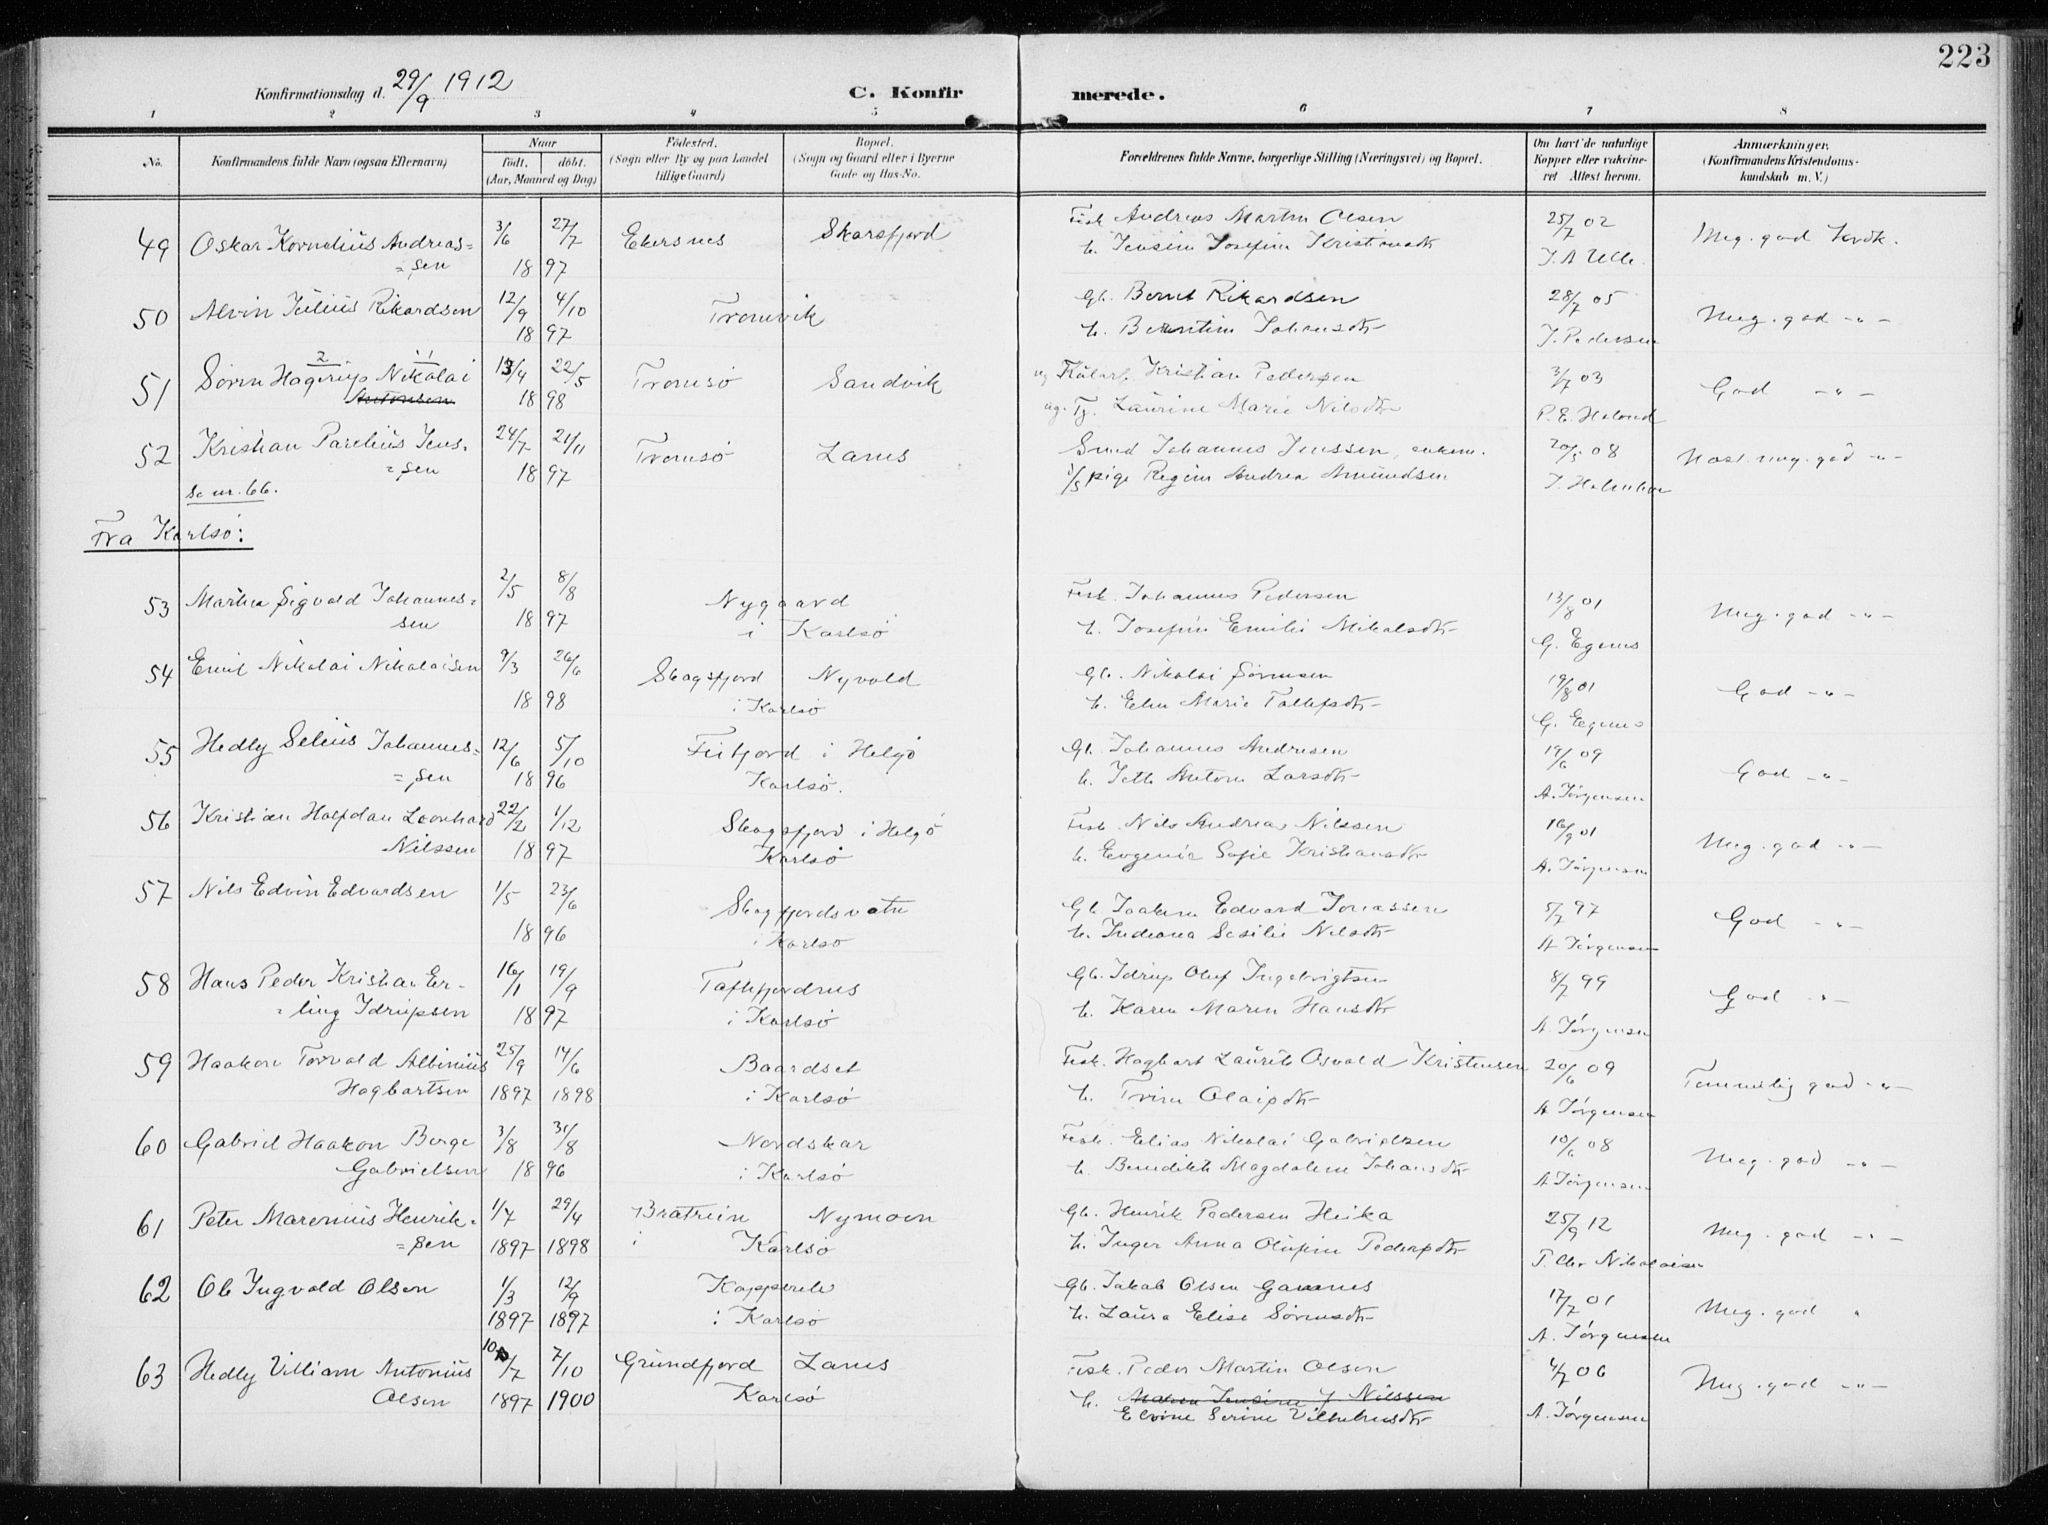 223
Konfirmationsdag d. 29/9 1912
C. Konfirmerede.
1 2 3 4 5 6 7 8
No. Konfirmandens fulde Navn (ogsaa Efternavn) Naar født. døbt. (Aar, Maaned og Dag) Fødested. (Sogn eller By og paa Landet tillige Gaard) Bopæl. (Sogn og Gaard eller i Byerne Gade og Hus-No. Forældrenes fulde Navne, borgerlige Stilling (Næringsvei) og Bopæl. Om havt de naturlige Kopper eller vakcineret Attest herom. Anmærkninger. (Konfirmandens Kristendomskundskab m. V.)
49 Oskar Kornelius Andreas- 3/6 27/7 Ekersnes Skarsfjord Fisk. Andreas Martin Olsen 25/7 02 Meg. god Krdk.
=sen 18 97 h. Jensine Josefine Kristiansdtr
50 Alvin Julius Rikardsen 12/9 4/10 Tromvik Gb. Bernt Rikardsen 28/7 05 Meg. god -"-
18 97 h. Berntine Johansdtr J. Pedersen
51 Søren Hagerup Nikolai 13/4 22/5 Tromsø Sandvik Kristian Pedersen 3/7 03 God -"-
Antonsen 18 98 Laurine Marie Nilsdtr
52 Kristian Parelius Jens- 24/7 21/11 Tromsø Lanes Johannes Jenssen, enkem. 20/5 08 meg. god -"-
=sen 18 97 pige Regine Andrea Amundsen
Se nr. 66.
Fra Karlsø:
53 Martin Sigvald Johannes- 2/5 8/8 Nygaard Fisk. Johannes Pedersen 13/8 01 Meg. god -"-
sen 18 97 i Karlsø h. Josefine Emilie Mikalsdtr G. Egenes
54 Emil Nikolai Nikolaisen 9/3 26/6 Skogsfjord Nyvold Gb. Nikolai Sørensen 19/8 01 God -"-
18 98 i Karlsø h. Elen Marie Tollefsdtr G. Egenes
55 Hedly Selius Johannes- 12/6 5/10 i Helgø Gb. Johannes Andresen 19/6 09 God -"-
=sen 18 96 Karlsø. h. Jette Antone Larsdtr A. Jørgensen
56 Kristian Halfdan Leonhard 22/2 1/12 Skogsfjord i Helgø Fisk. Nils Andreas Nilssen 16/9 01 Meg. god -"-
Nilssen 18 97 Karlsø h. Evgenie Sofie Kristiansdtr A. Jørgensen
57 Nils Edvin Edvardsen 1/5 23/6 Skogfjordsvatn Gb. Joakim Edvard Jonassen 5/7 97 God -"-
18 96 i Karlsø h. Indiana Sesilie Nilsdtr A Jørgensen
58 Hans Peder Kristian Er- 16/1 19/9 Gb. Idrup Oluf Ingebrigtsen 8/7 99 God -"-
=ling Idrupsen 18 97 i Karlsø h. Karen Maren Hansdtr A Jørgensen
59 Haakon Torvald Albinius 25/9 14/6 Baardset Fisk. Hagbart Laurits Osvald Kristensen 20/6 09 Temmelig god -"-
Hagbartsen 1897 1898 i Karlsø h. Trine Olaisdtr A Jørgensen
60 Gabriel Haakon Berge 3/8 31/8 Nordskar Fisk. Elias Nikolai Gabrielsen 10/6 08 Meg. god -"-
Gabrielsen 18 96 i Karlsø h. Benedikte Magdalene Johansdtr A Jørgensen
61 Peter Marenius Henrik- 1/7 29/4 Bratrein Nymoen Gb. Henrik Pedersen Heika 25/9 12 Meg. god -"-
=sen 1897 1898 i Karlsø h. Inger Anna Olufine Pedersdtr P. Chr Nikolaisen
62 Ole Ingvald Olsen 1/3 12/9 Gb. Jakob Olsen Gamnes 17/7 01 Meg. god "
1897 1897 i Karlsø h. Laura Elise Sørensdtr A. Jørgensen
63 Hedly Villiam Antonius 10/7 7/10 Grundfjord Lanes Fisk. Peder Martin Olsen 4/7 06 Meg. god -"-
Olsen 1897 1900 Karlsø h. Maren Jensine J. Nilssen
Elvine Serine Vilhelmsdtr A. Jørgensen